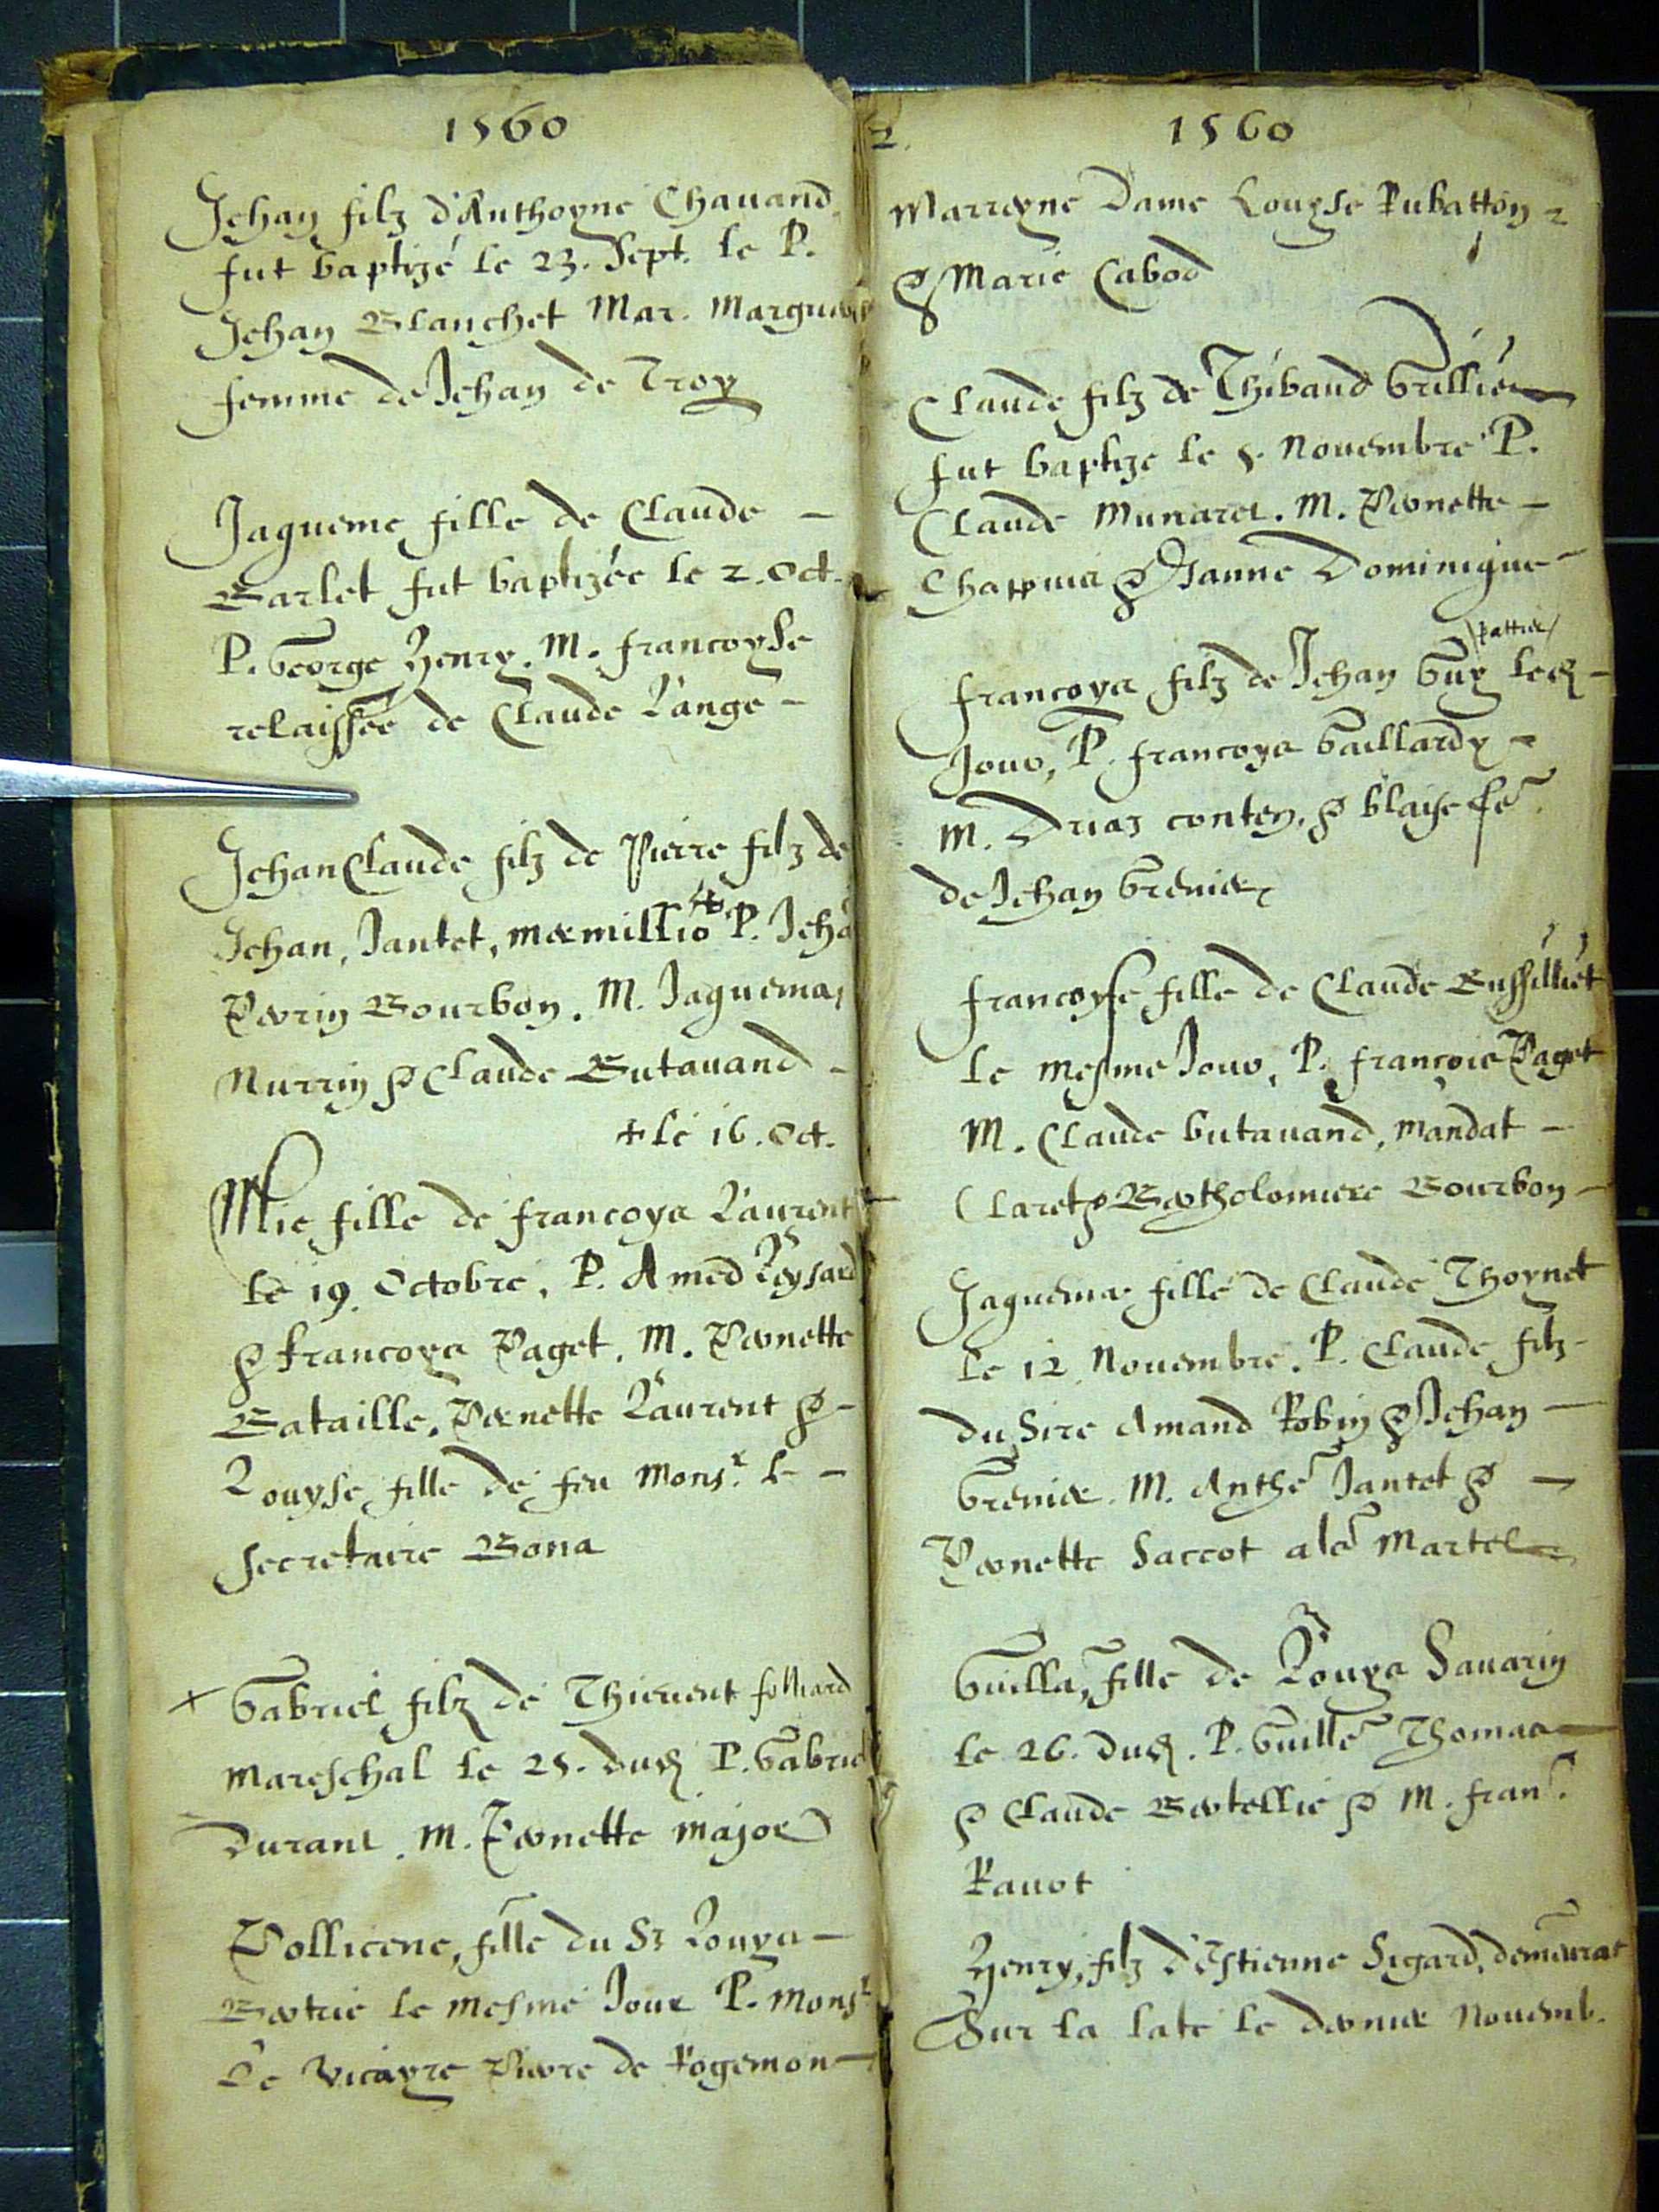 1560
Jehan filz d'Anthoyne Chavand
fut baptizé le 23. Sept. le P.
Jehan Blanchet Mar. Margue
femme de Jehan de Troy
Jaqueme fille de Claude –
Barlet fut baptizée le 2. Oct.
P. George Henry. M. francoyse
relaissée de Claude L'ange –
Jehan Claude filz de Pierre filz de
Jehan, Jantet, P. Jehã
Perrin Bourbon. M. Jaquema
Nurrin & Claude Butavand –
+ le 16. Oct.
Mie fille de francoys Laurent
le 19. Octobre. P. Amed Reysard
& francoys Paget. M. Pernette
Bataille, Pernette Laurent & –
Louyse fille de feu Monsr. le –
secretaire Bona
+ Gabriel filz de Thievent folliard
Mareschal le 25. dud. P. Gabriel
Durant. M. Pernette major
Pollicene, fille du Sr Louys –
Bertrie le mesme Jour P. Monsr.
Le vicayre Pierre de Rogemon –
2.
1560
Marreyne Dame Louyse Rubatton
& Marie Cabod
Claude filz de Thibaud Grillier
fut baptize le 5. Novembre P.
Claude Munaret. M. Pernette –
Chappuis & Janne Dominique –
francoys filz de Jehan Guy led. –
Jour, P. francoys Gaillardy –
M. & blaise fẽ.
de Jehan Grenier
francoyse fille de Claude Bussilliet
Le mesme Jour, P. françois Paget
M. Claude butavand, mandat –
Claret & Bertholomiere Bourbon –
Jaquema fille de Claude Thoynet
le 12. Novembre. P. Claude filz –
du Sire Amand Robin & Jehan –
Grenier. M. Anthẽ Jantet & –
Pernette Saccot alẽ Martel
Guilla, fille de Louys Savarin
le 26. dud. P. Guillẽ Thomas –
& Claude Bertellie & M. fran.
Ravot
Henry, filz d'Estienne Sigard, demeurãt
Sur la late le dernier Novemb.